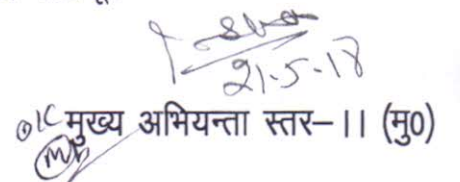 21-5-18
मुख्य अभियन्ता स्तर-।। (मु0)